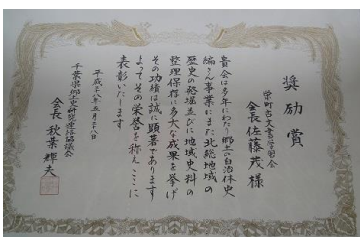 奨励賞
栄町古文書学習会
会長佐藤茂様
貴会は多年にわたり郷土の自治体史
編さん事業にまた北総地域の
歴史の発掘並びに地域史料の
整理保存に多大な成果を挙げ
その功績は誠に顕著であります
よってその栄誉を称えここに
表彰いたします
平成十八年五月二十八日
千葉県郷土史研究連絡協議会
会長秋葉輝夫